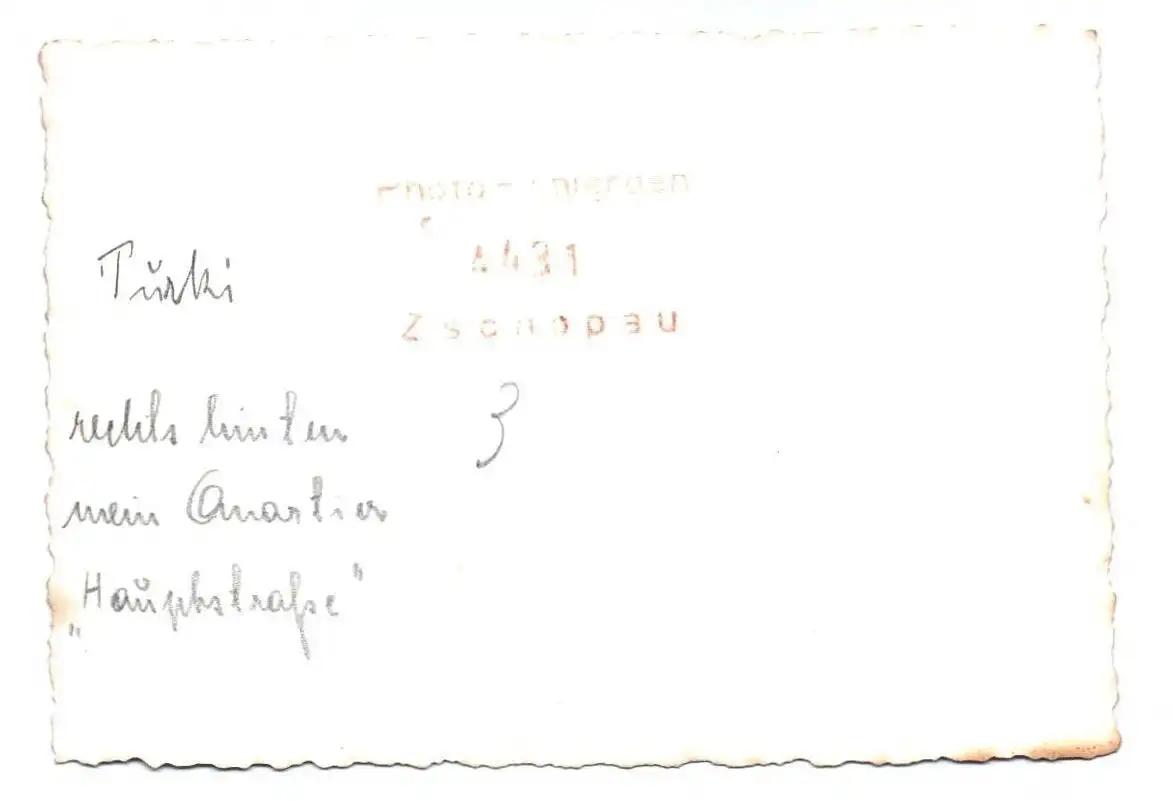 4431
Zschopau
Turki
rechts hinten
3
mein Quartier
„Hauptstraße"